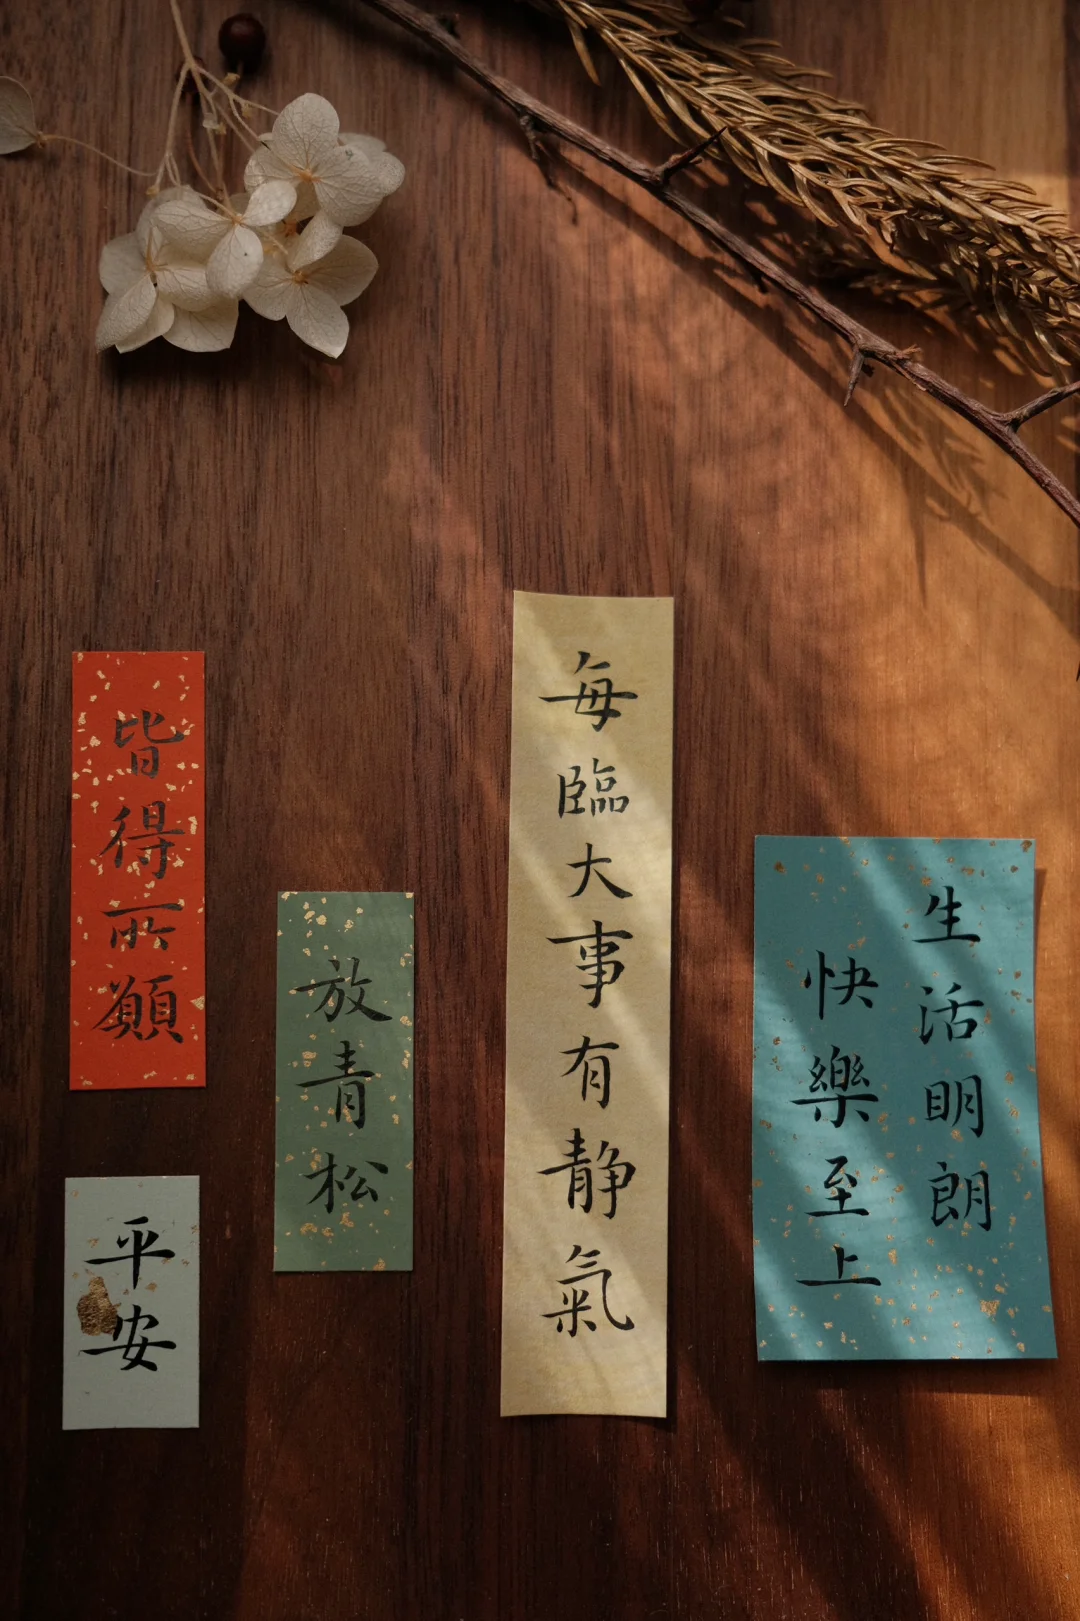 皆得所願
平安
放青松
每臨大事有静氣
生活明朗
快樂至上